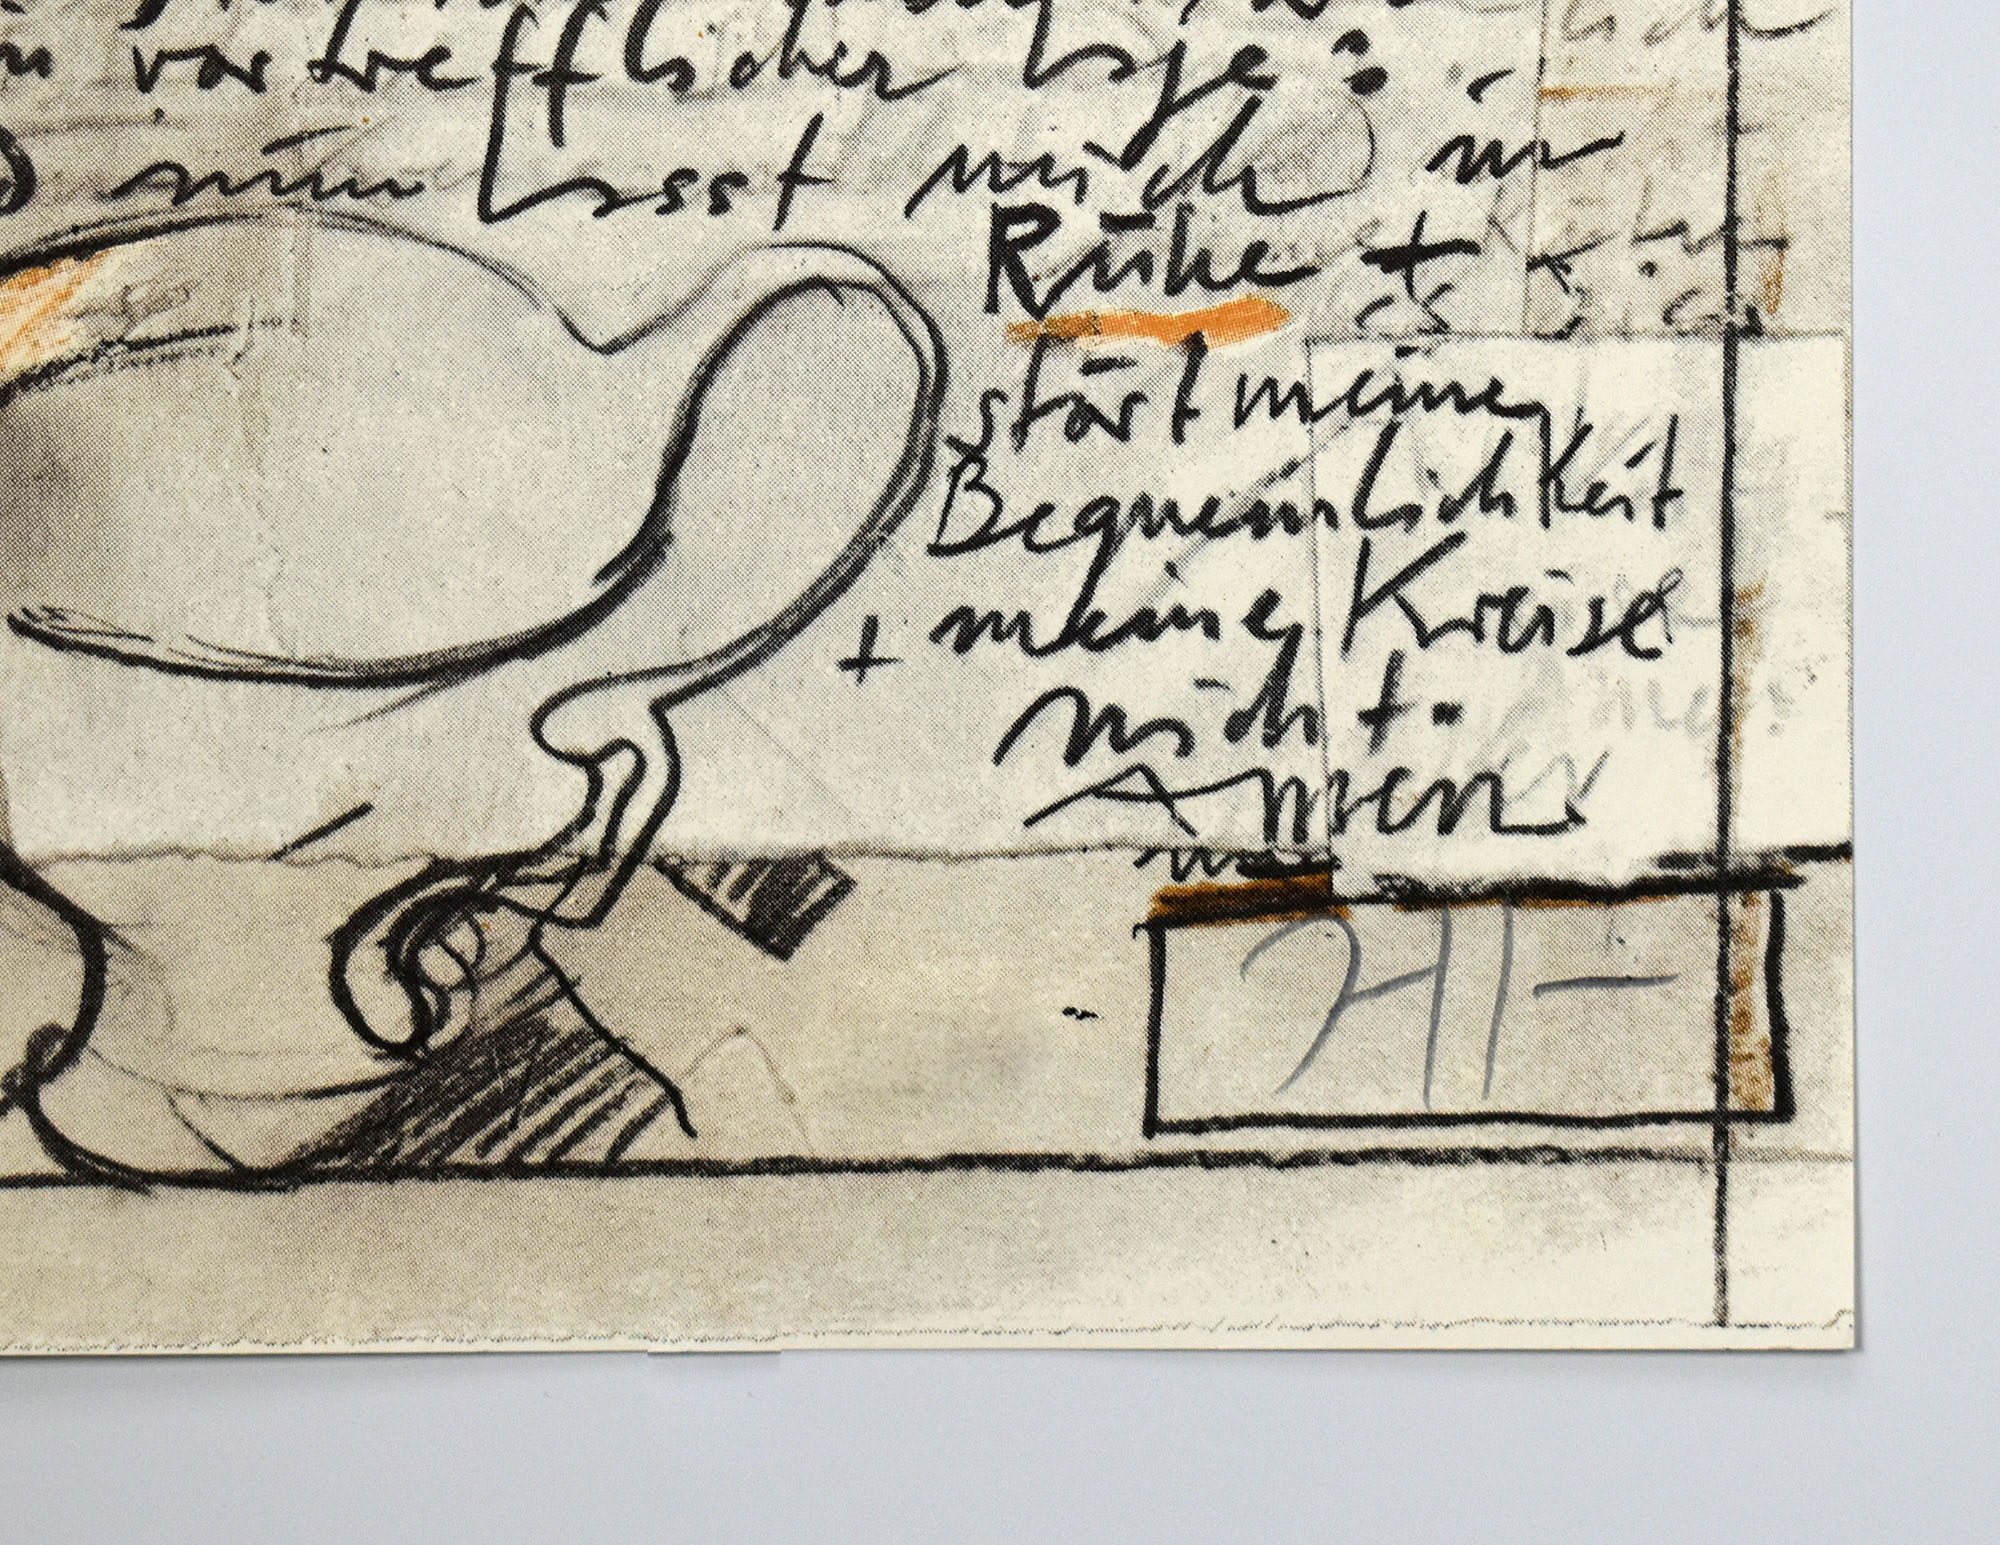 vortrefflicher Lage:
nun Lasst mich in
Ruhe +
stört meine
Bequemlichkeit
+ meine Kreise
nicht.
Amen